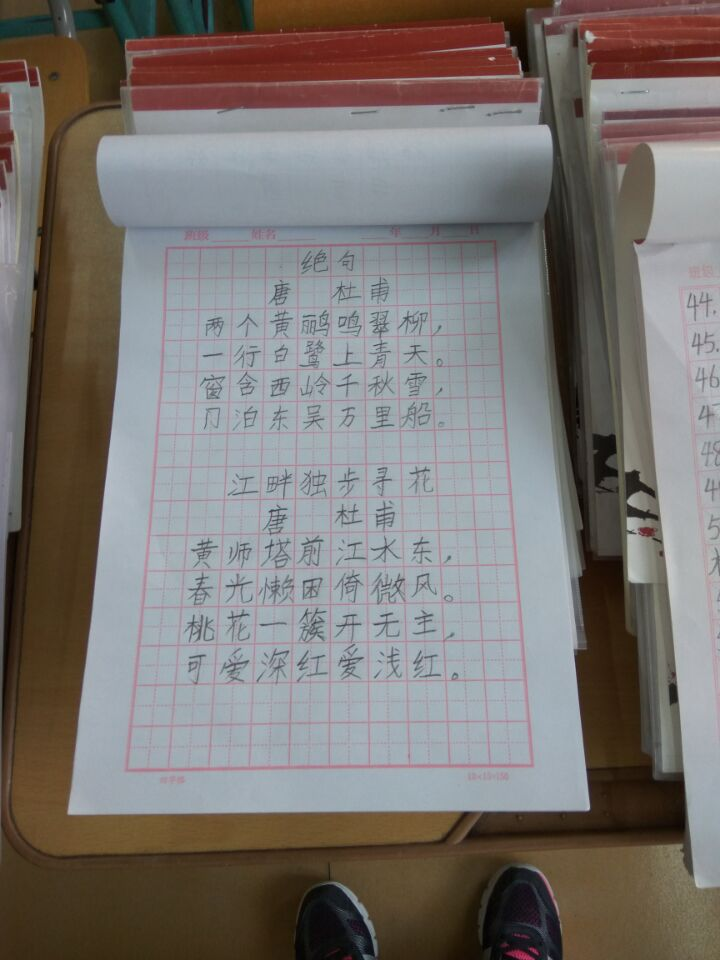 班级 姓名 年 月 日
绝句
唐 杜甫
两个黄鹂鸣翠柳，
一行白鹭上青天。
窗含西岭千秋雪，
门泊东吴万里船。
江畔独步寻花
唐 杜甫
黄师塔前江水东，
春光懒困倚微风。
桃花一簇开无主，
可爱深红爱浅红。
44.
45.
46
48